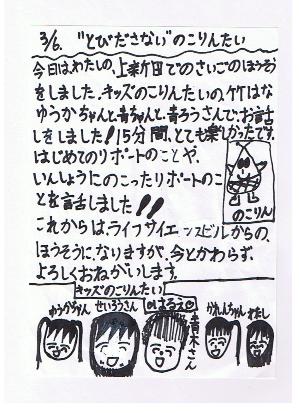 3/6. "とびださない"のこりんたい
今日は、わたしの、上新田でのさいごのほうそう
をしました。キッズのこりんたいの、竹はな
ゆうかちゃんと青ちゃんと、青ろうさんで、お話
をしました!15分間、とても楽しかったです。
はじめてのリポートのことや、
いんしょうにのこったリポートのこ
とを話しました!!
これからはライフサイエンスビルからの、
ほうそうに、なりますが、今とかわらず、
よろしくおねがいします。
のこりん
キッズのこりんたい
ゆうかちゃん
せいろうさん
青木さん
かれんちゃん
わたし